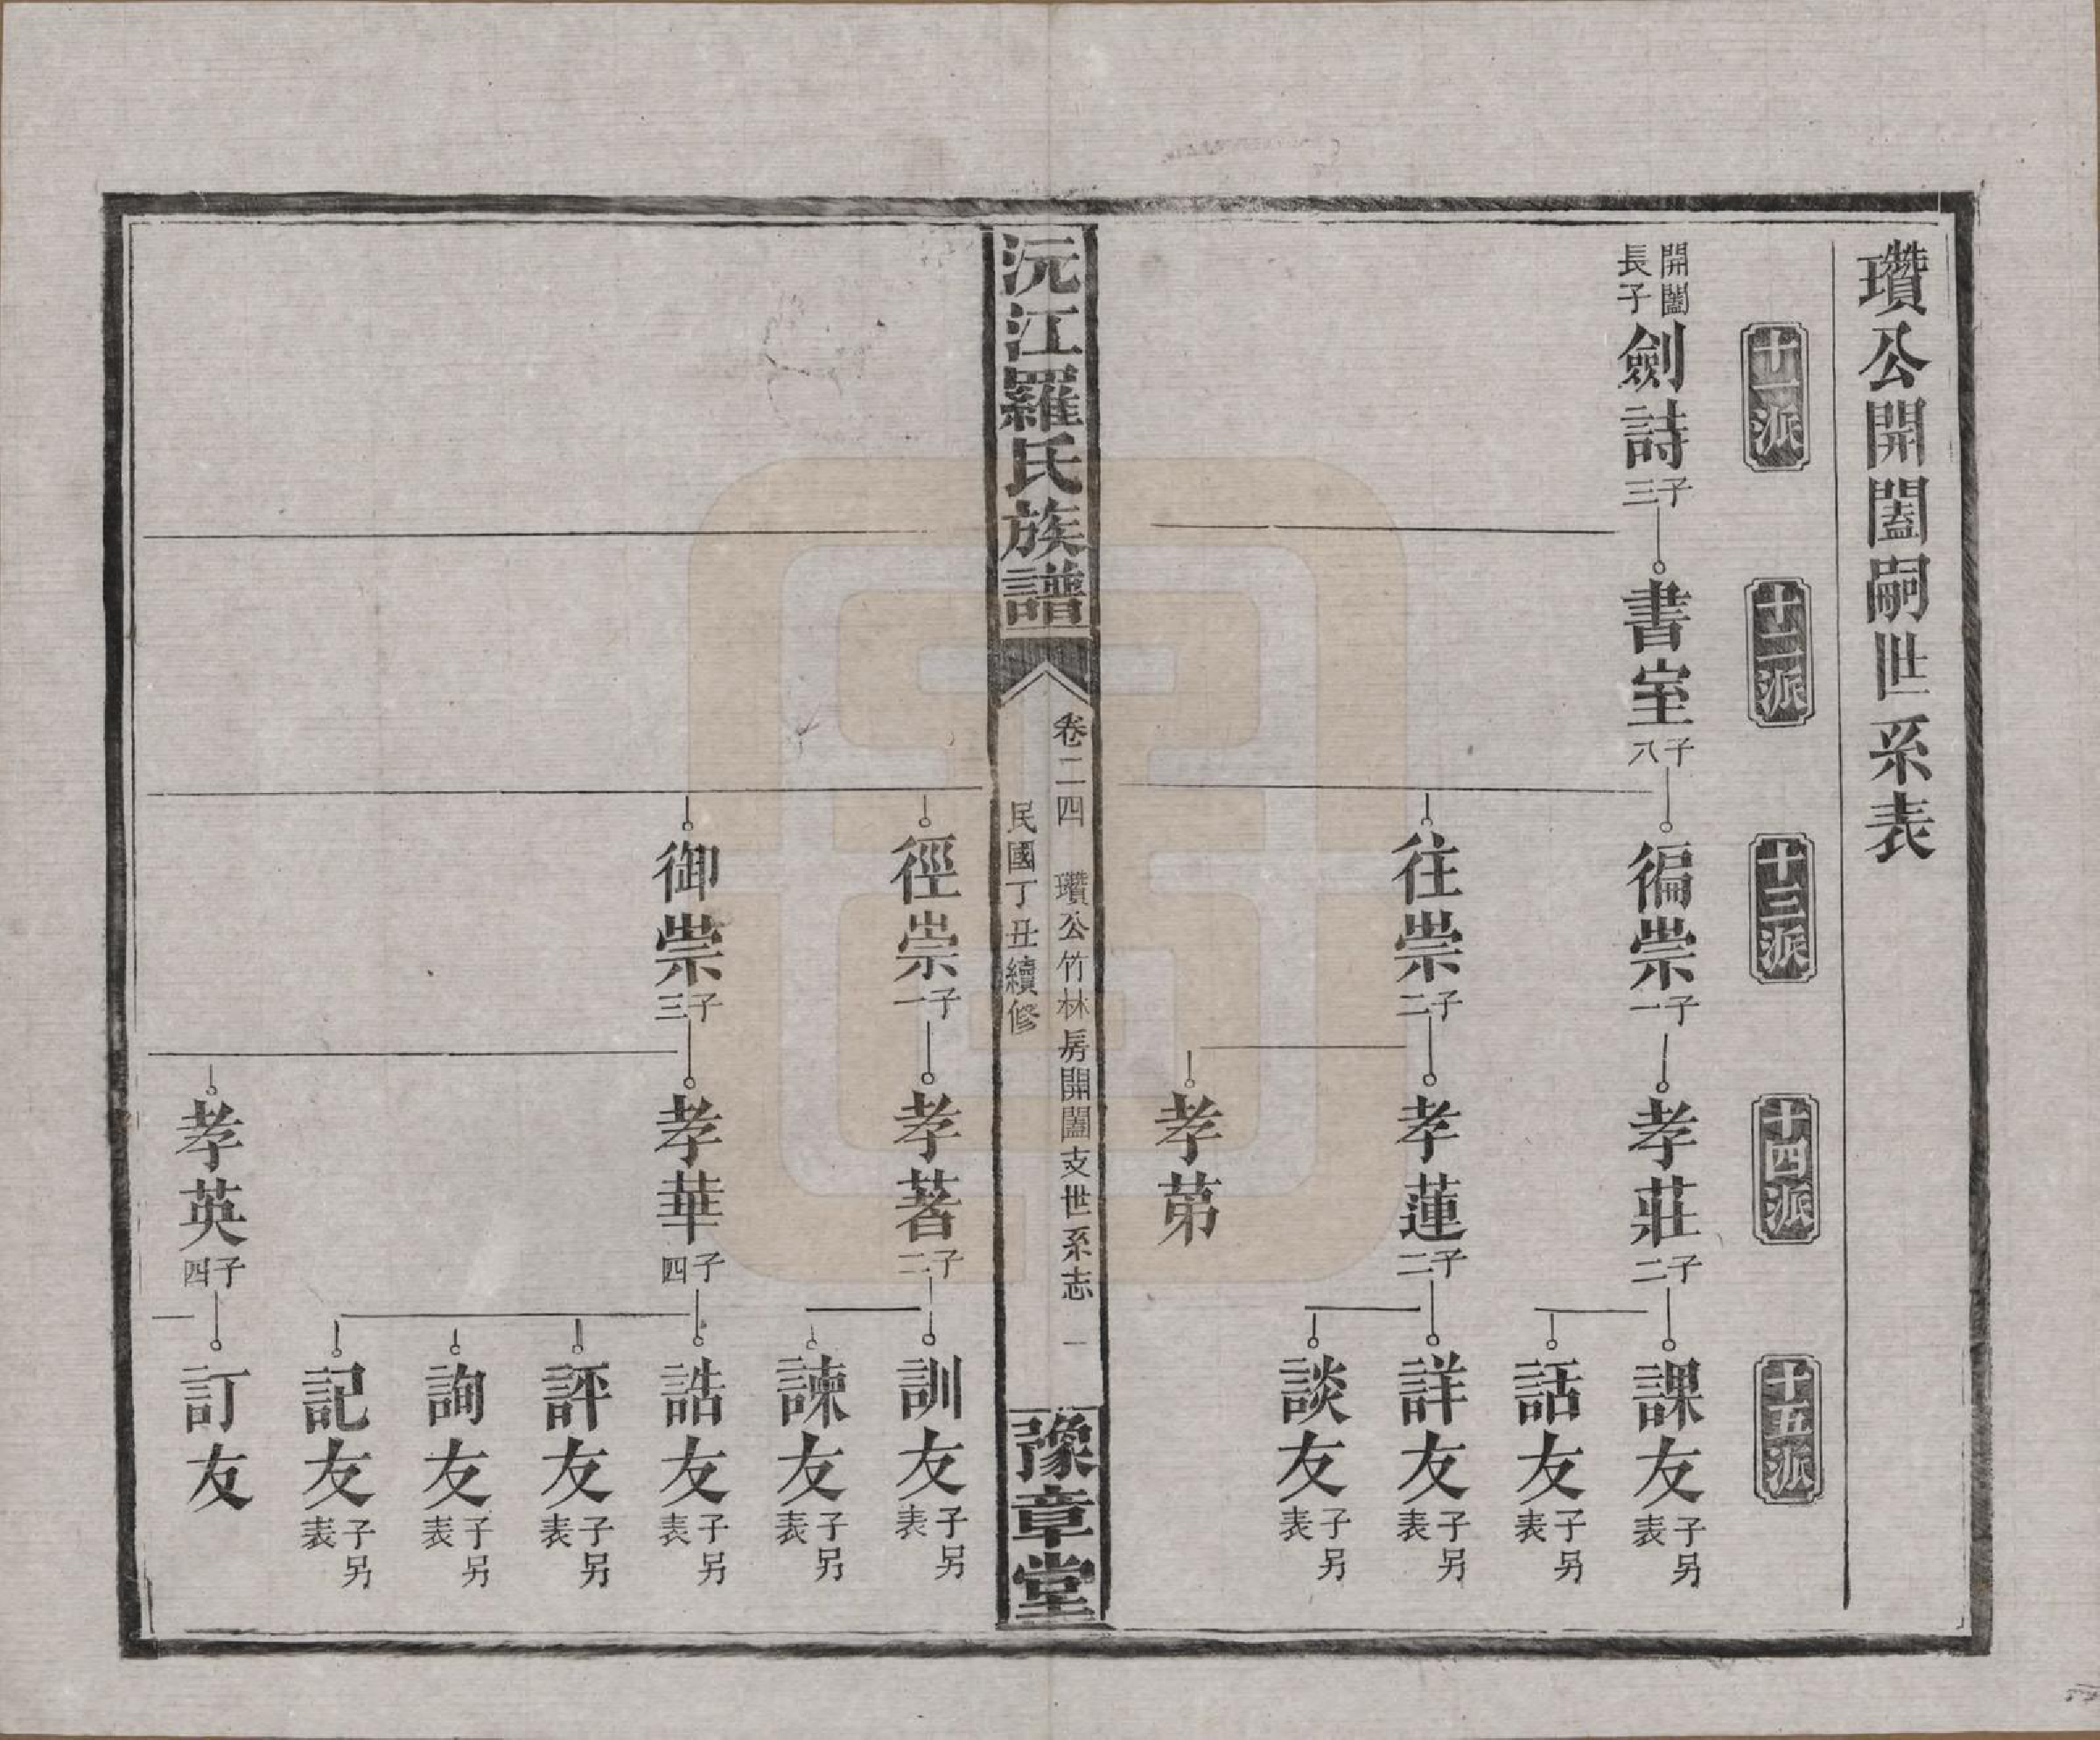 瓚公開闔嗣世系表
十一派
十二派
十三派
十四派
十五派
開闔長子
劍詩 子三
書室 子八
徧崇 子一
孝莊 子二
課友 子另表
話友 子另表
往崇 子二
孝蓮 子二
詳友 子另表
談友 子另表
孝苐
沅江羅氏族譜
卷二四 瓚公竹林房開闔支世系志 一
民國丁丑續修
豫章堂
徑崇 子一
孝著 子二
訓友 子另表
諫友 子另表
御崇 子三
孝華 子四
誥友 子另表
評友 子另表
詢友 子另表
記友 子另表
孝英 子四
訂友